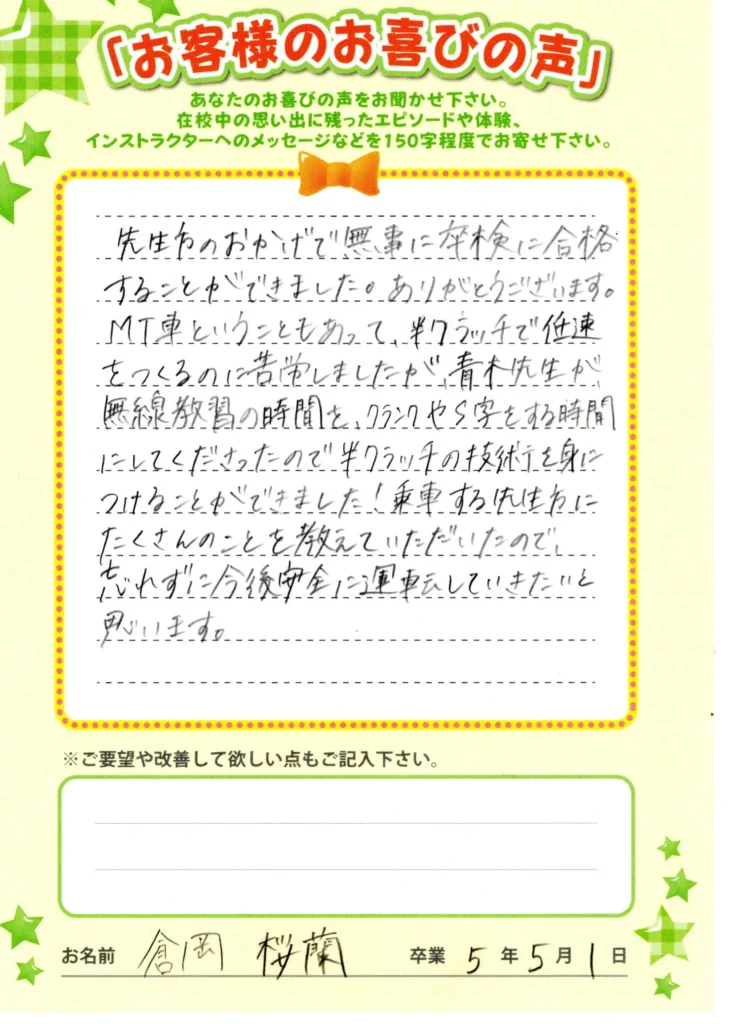 「お客様のお喜びの声」
あなたのお喜びの声をお聞かせ下さい。
在校中の思い出に残ったエピソードや体験、
インストラクターへのメッセージなどを150字程度でお寄せ下さい。
先生方のおかげで無事に卒検に合格
することができました。ありがとうございます。
MT車ということもあって、半クラッチで低速
をつくるのに苦労しましたが、青木先生が、
無線教習の時間を、クランクやS字をする時間
にしてくださったので半クラッチの技術を身に
つけることができました！乗車する先生方に
たくさんのことを教えていただいたので、
忘れずに今後安全に運転していきたいと
思います。
※ご要望や改善して欲しい点もご記入下さい。
お名前 倉岡 桜蘭 卒業 5 年 5 月 1 日